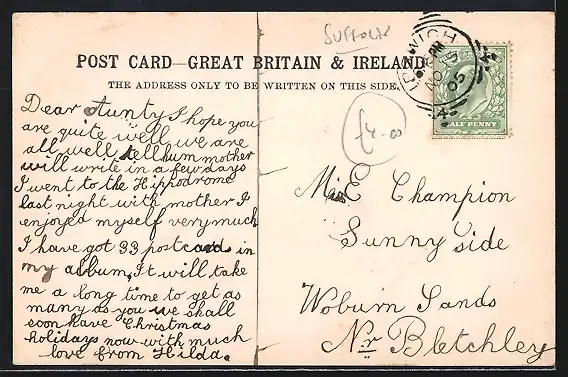 SUFFOLK
POST CARD—GREAT BRITAIN & IRELAND
THE ADDRESS ONLY TO BE WRITTEN ON THIS SIDE.
IPSWICH
NO 15
05
HALF PENNY
£4-00
Dear Aunty I hope you
are quite well, we are
all well, tell mother
will write in a few days
I went to the Hippodrome
last night with mother I
enjoyed myself very much
I have got 33 postcards in
my album, It will take
me a long time to get as
many as you we shall
soon have Christmas
holidays now with much
love from Hilda.
E Champion
Sunny side
Woburn Sands
Nr Bletchley